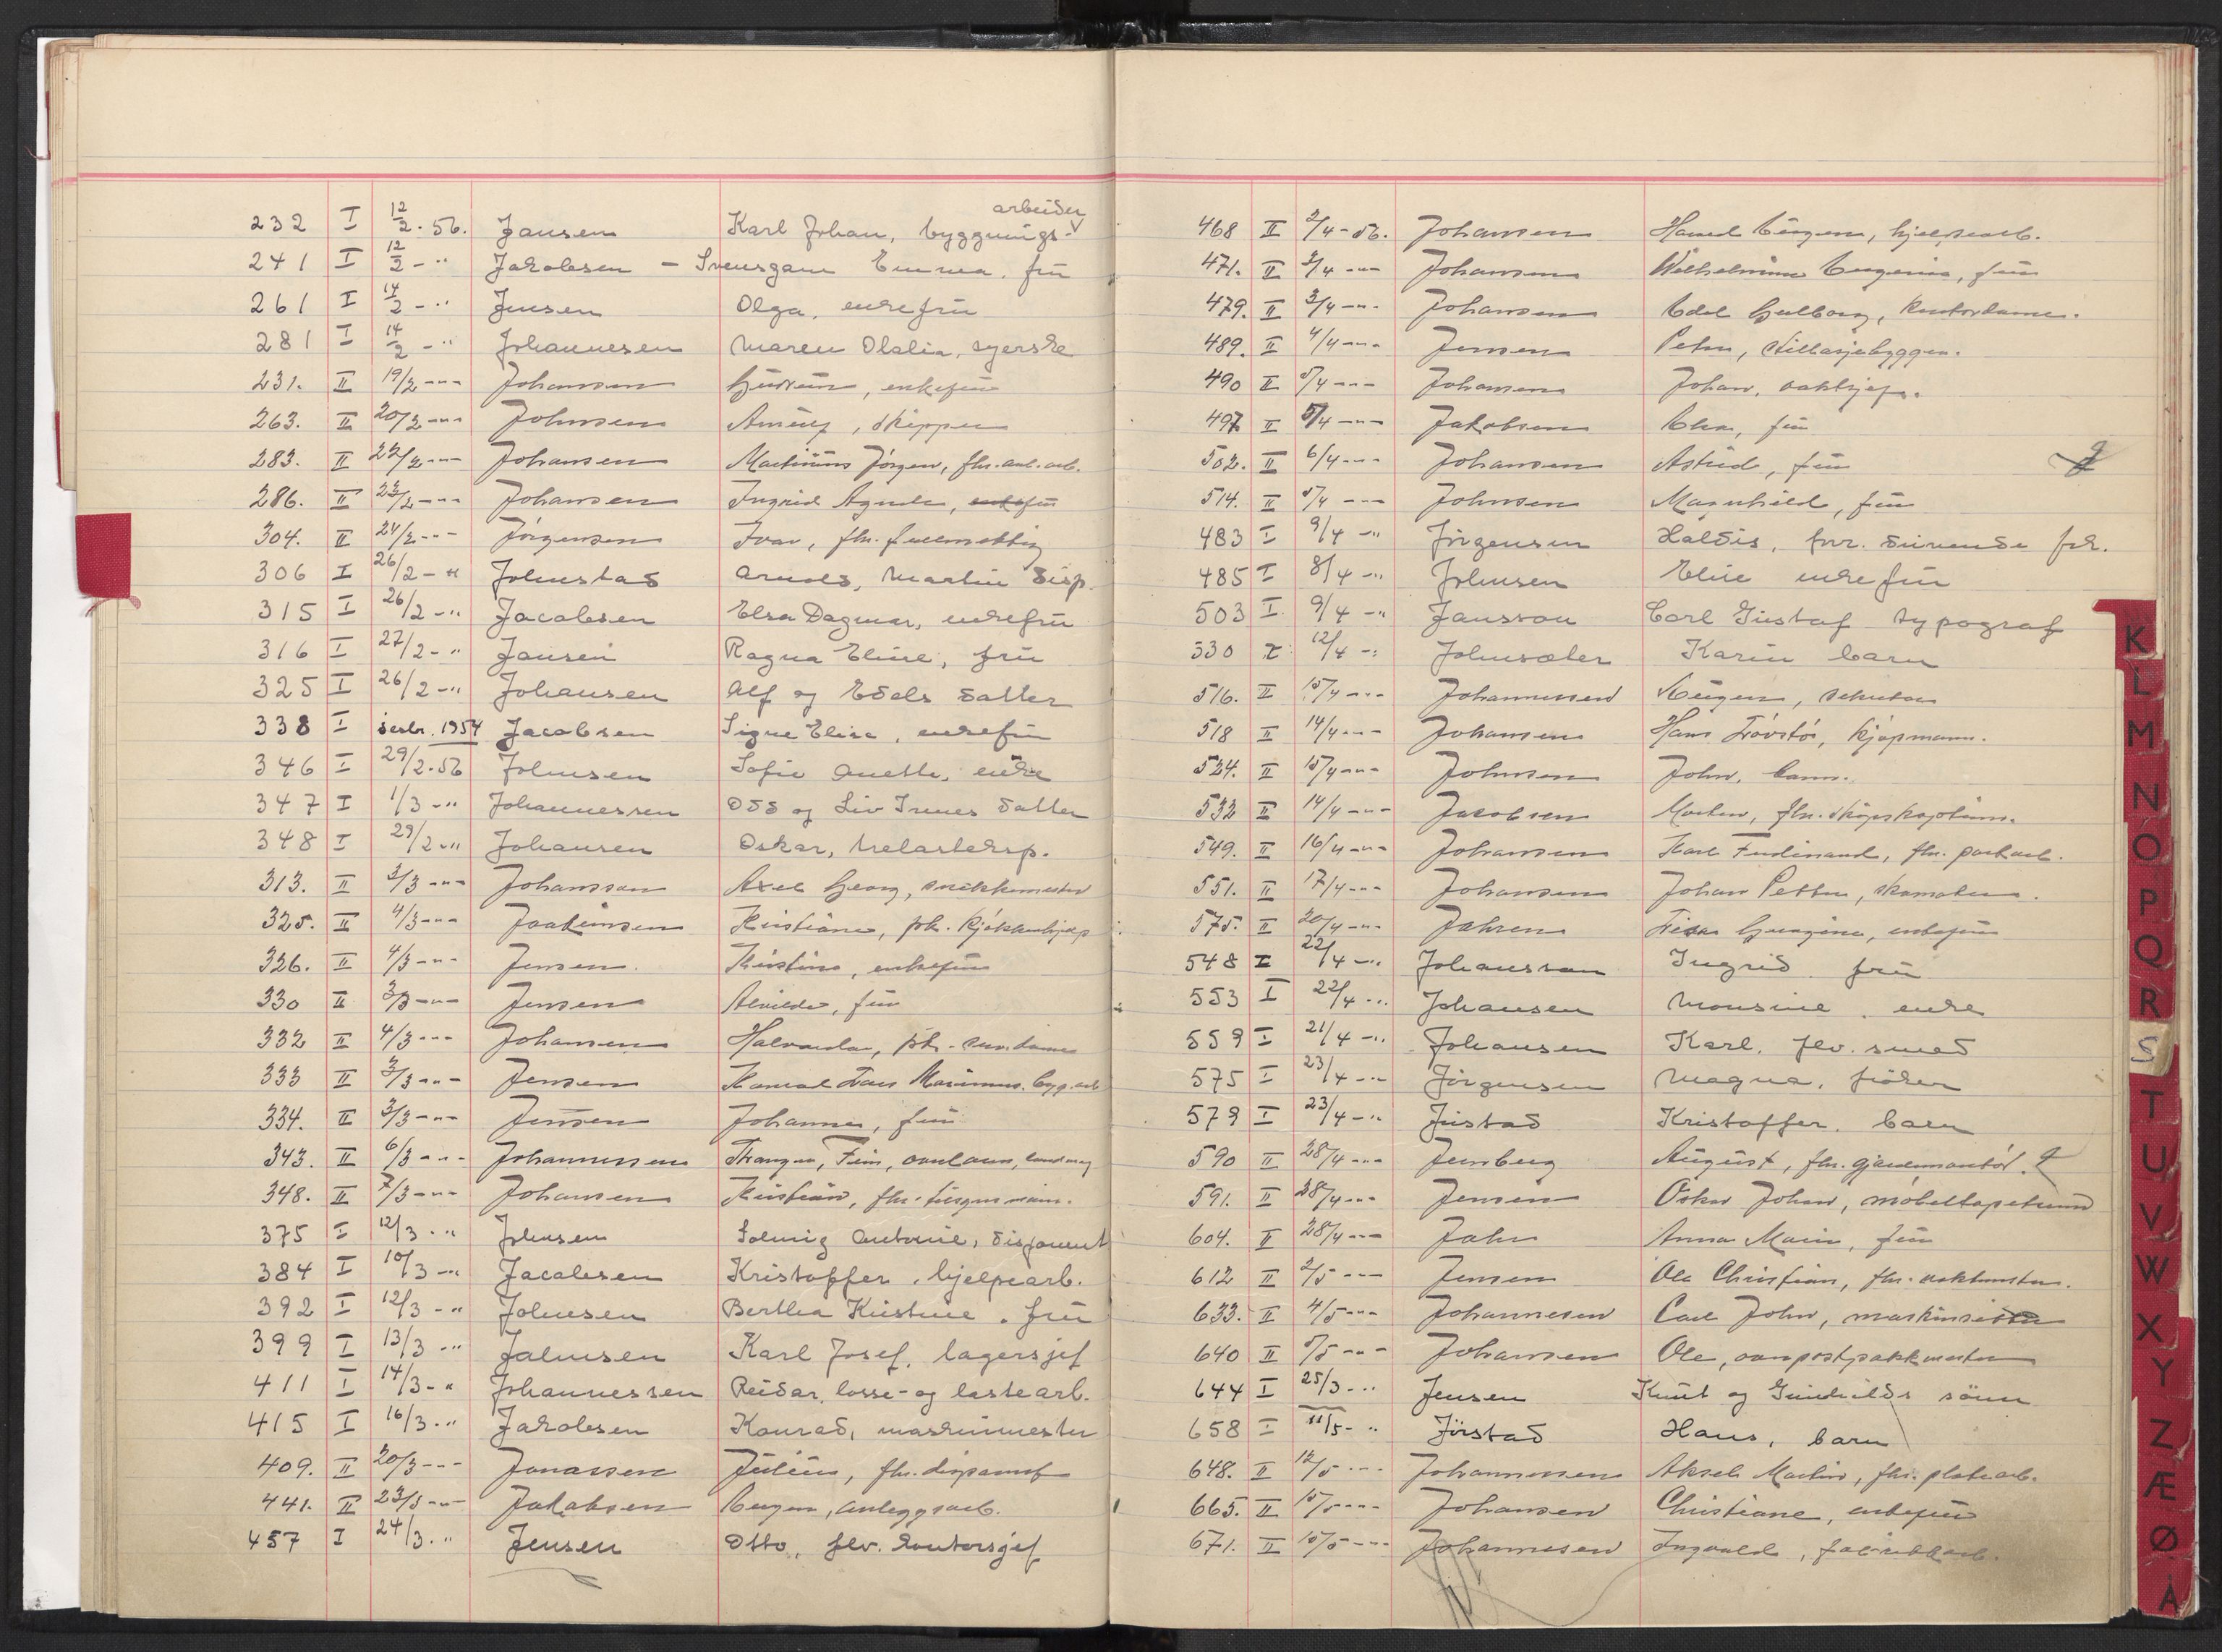 arbeider
232 I 12/2-56. Jansen Karl Johan, byggnings-
241 I 12/2-" Jakobsen - Svensgam Emma, frü
261 I 14/2-" Jensen Olga, enkefrü
281 I 14/2-" Johannesen Maren Olalia, syerske
231. II 19/2-"- Johansen Gudrun, enkefrü
263. II 20/2-"- Johnsen skipper
283. II 22/2-"- Johansen Martinius Jørgen, fhv. anl. arb.
286. II 23/2-"- Johansen Ingrid Agnete,
304. II 24/2-"- Jörgensen Ivar, fhv.
306 I 26/2-" Johnstad Arnold, Martin disp.
315 I 26/2-" Jacobsen Elsa Dagmar, enkefrü
316 I 27/2-" Jansen Ragna Eline, frü
325 I 26/2-" Johansen Alf og Edels datter
338 I desbr. 1954 Jacobsen Signe Elise, enkefrü
346 I 29/2-56 Johnsen Sofie Anette, enke
347 I 1/3-" Johannessen Odd og Liv Irenes datter
348 I 29/2-" Johansen Oskar, trelasteksp.
313. II 3/3-"- Johansson Axel Georg, snekkermester
325. II 4/3-"- Joakimsen Kristiane, frk. kjøkkenhjelp
326. II 4/3-"- Jensen Kristine, enkefrü
330 II 3/3-"- Jensen Alvilde, frü
332 II 4/3-"- Johansen frk.
333 II 3/3-"- Jensen Konrad Maximus, byg.arb
334. II 3/3-"- Jensen Johanna, frü
343. II 6/3-"- Johannessen
348. II 7/3-"- Johansen Kristian, fhv.
375 I 12/3-" Johnsen Solveig Antonie, disponent
384 I 10/3-" Jacobsen Kristoffer, hjelpearb.
392 I 12/3-" Johnsen Berthea Kristine, frü
399 I 13/3-" Johnsen Karl Josef, lagersjef
411 I 14/3-" Johannessen Reidar, losse- og lastearb.
415 I 16/3-" Jakobsen Konrad, maskinmester
409. II 20/3-"- Jonassen Julius, fhv. disponent
441. II 23/3-"- Jakobsen Eugen, anleggsarb.
457 I 24/3-" Jensen Otto, flv. kontorsjef
468 II 2/4-56. Johansen Eugen, hjelpearb.
471. II 3/4-"- Johansen Wilhelmine Eugenie, frü
479. II 3/4-"- Johansen Edel Gulborg, kontordame.
489. II 4/4-"- Jensen Peter, stillasjebygger.
490 II 5/4-"- Johansen Johan, vaktsjef.
497 II 5/4-"- Jakobsen frü
502. II 6/4-"- Johansen Astrid, frü
514. II 5/4-"- Johnsen Magnhild, frü
483 I 9/4-" Jörgensen Haldis, forr. drivende frk.
485 I 8/4-" Johnsen Eline enkefrü
503 I 9/4-" Jansson Carl Gustaf typograf
530 I 12/4-" Johnsæter Karin barn
516. II 15/4-"- Johannessen
518 II 14/4-"- Johansen Hans kjøpmann.
524. II 15/4-"- Johnsen John, barn.
532 II 14/4-"- Jacobsen Morten, fhv.
549. II 16/4-"- Johansen Karl Ferdinand, fhv. parkarb.
551. II 17/4-"- Johansen Johan Petter, skomaker.
575. II 20/4-"- Jahren Georgine, enkefrü
548 I 22/4-" Johansson Ingrid frü
553 I 22/4-" Johansen Monsine, enke
559 I 21/4-" Johansen Karl, flv. smed
575 I 23/4-" Jörgensen Magna, fröken
579 I 23/4-" Justad Kristoffer, barn
590 II 28/4-"- Jernberg August, fhv. gjørdemontør.
591. II 28/4-"- Jensen Oskar Johan, møbeltapetserer
604. II 28/4-"- Jahr Anna Marie, frü
612 II 2/5-"- Jensen Ole Christian, fhv. vaktmester.
633. II 4/5-"- Johannesen Carl John, maskinsetter
640 II 5/5-"- Johansen Ole, overpostpakkmester
644 I 25/3-" Jensen Knut og Gunhilds sönn
658 I 11/5-" Jörstad Hans, barn
648. II 12/5-"- Johannessen Aksel Martin, fhv. platearb.
665. II 15/5-"- Johansen Christiane, enkefrü
671. II 15/5-"- Johannesen Ingvald, fabrikkarb.
K
L
M
N
O
P
Q
R
S
T
U
V
W
X
Y
Z
Æ
Ø
Å